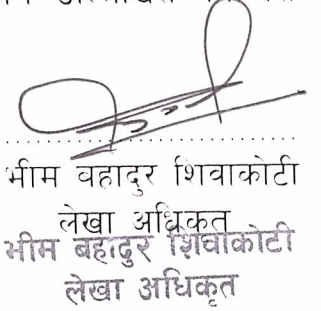 भीम वहादुर शिवाकोटी
लेखा अधिकृत
भीम बहादुर शिवाकोटी
लेखा अधिकृत